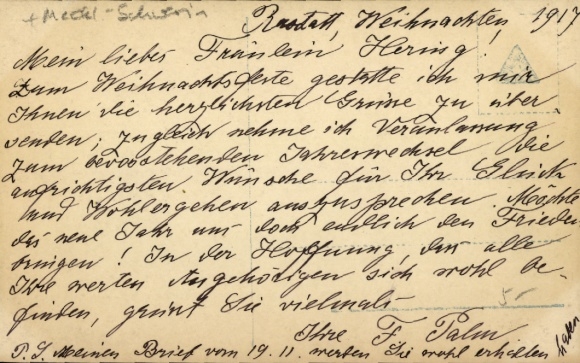 + Meckl-Schwerin
Rastatt, Weihnachten, 1917
Mein liebes Fräulein Hering!
Zum Weihnachtsfeste gestatte ich mir
Ihnen die herzlichsten Grüsse zu über-
senden, zugleich nehme ich Veranlassung
zum bevorstehenden Jahreswechsel die
aufrichtigsten Wünsche für Ihr Glück
und Wohlergehen auszusprechen. Möchte
das neue Jahr uns doch endlich den Frieden
bringen! In der Hoffnung, dass alle
Ihre werten Angehörigen sich wohl be-
finden, grüsst Sie vielmals
5-
Ihre F Palm
P.S. Meinen Brief vom 19.11 werden Sie wohl erhalten
haben